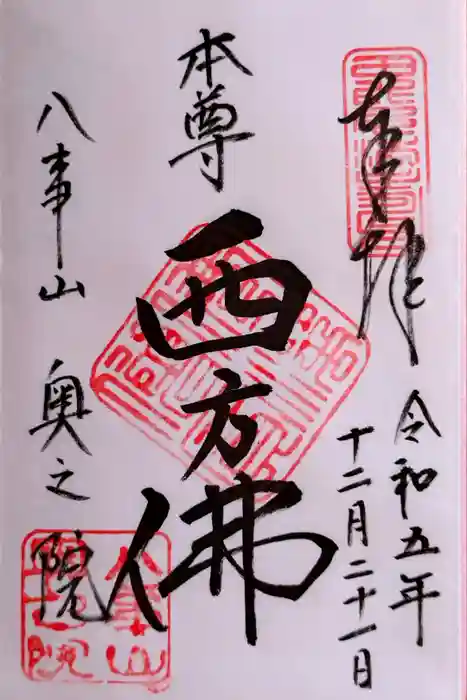 奉拝
令和五年
十二月二十一日
本尊
西方佛
八事山 奥之院